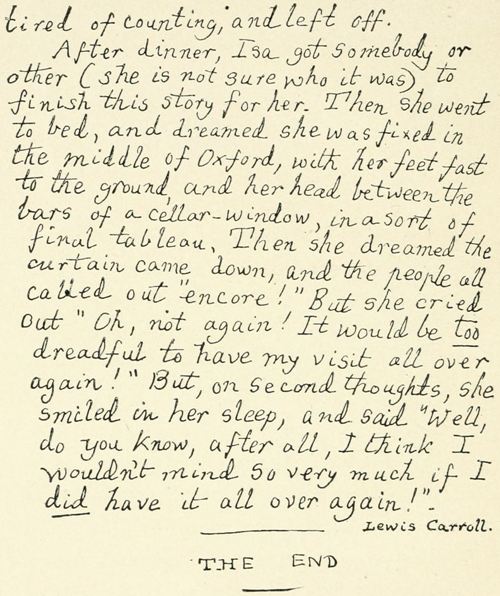 tired of counting, and left off.
After dinner, Isa got somebody or
other (she is not sure who it was) to
finish this story for her. Then she went
to bed, and dreamed she was fixed in
the middle of Oxford, with her feet fast
to the ground, and her head between the
bars of a cellar-window, in a sort of
final tableau. Then she dreamed the
curtain came down, and the people all
called out "encore!" But she cried
out "Oh, not again! It would be too
dreadful to have my visit all over
again!" But, on second thoughts, she
smiled in her sleep, and said "Well,
do you know, after all, I think I
wouldn't mind so very much if I
did have it all over again!".
Lewis Carroll.
THE END